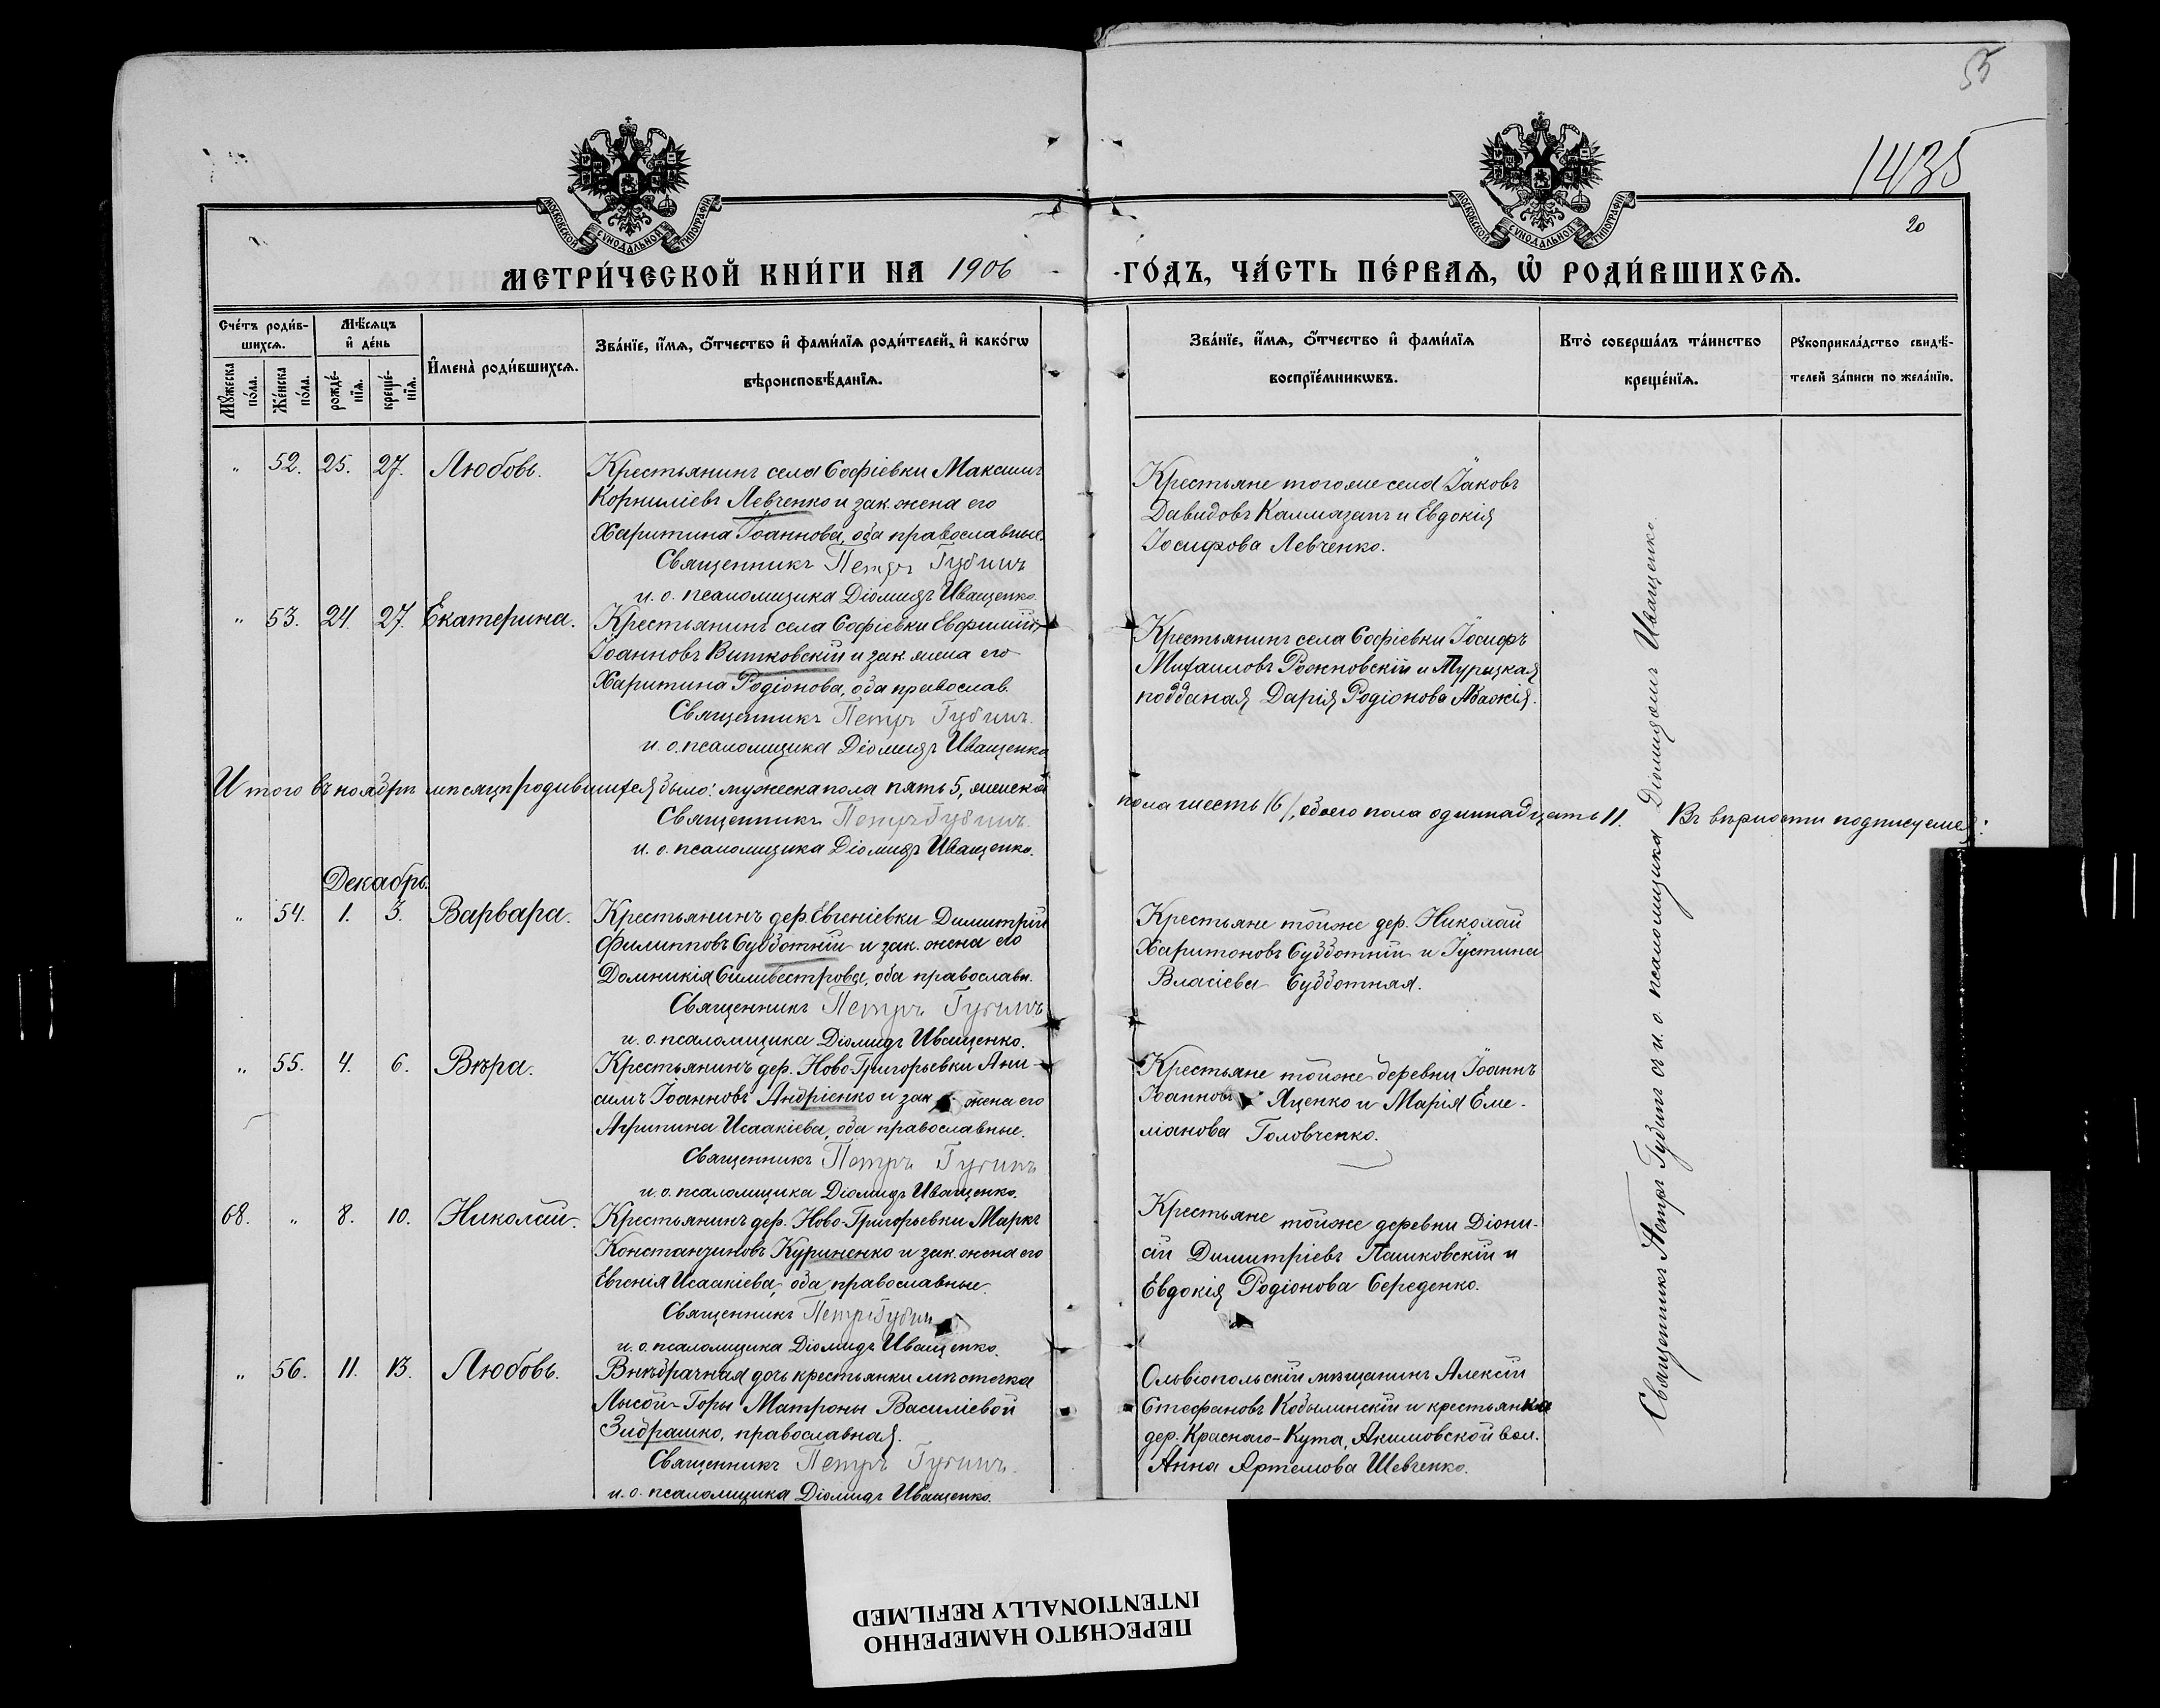 55
1435
20
МОСКОВСКОЙ СѴНОДАЛЬНОЙ ТИПОГРАФІИ
МОСКОВСКОЙ СѴНОДАЛЬНОЙ ТИПОГРАФІИ
МЕТРИ́ЧЕСКОЙ КНИ́ГИ НА 1906 ГО́ДЪ, ЧА́СТЬ ПЕ́РВАѦ, Ѡ РОДИ́ВШИХСѦ.
Сче́тъ роди́в-
шихсѧ.
Мꙋ́жеска по́ла.
Же́нска по́ла.
Мѣ́сѧцъ
и де́нь
рожде́-нїѧ.
креще́-нїѧ.
Имена̀ роди́вшихсѧ.
Зва́нїе, и́мѧ, ѻ́тчество и фами́лїѧ роди́телей, и како́гѡ
вѣроисповѣ́данїѧ.
Зва́нїе, и́мѧ, ѻ́тчество и фами́лїѧ
воспрїе́мникѡвъ.
Кто̀ соверша́лъ та́инство
креще́нїѧ.
Рꙋкоприкла́дство свидѣ́-
телей за́писи по жела́нїю.
" 52. 25. 27. Любовь.
Крестьянинъ села Софіевки Максимъ
Корниліевъ Левченко и зак. жена его
Харитина Іоаннова, оба православные.
Священникъ Петръ Губинъ
и. о. псаломщика Діомидъ Иващенко.
Крестьяне тогоже села Іаковъ
Давидовъ Калмазанъ и Евдокія
Іосифова Левченко.
" 53. 24. 27. Екатерина.
Крестьянинъ села Софіевки Евфимій
Іоанновъ Витковскій и зак. жена его
Харитина Родіонова, оба православ.
Священникъ Петръ Губинъ.
и. о. псаломщика Діомидъ Иващенко
Крестьянинъ села Софіевки Іосифъ
Михаиловъ Рожновскій и Турецкая
подданая Дарія Родіонова
Итого въ ноябрѣ мѣсяцѣ родившихся было: мужеска пола пять 5, женска
пола шесть /6/, обоего пола одиннадцать 11. Въ вѣрности подписуемся:
Священникъ Петръ Губинъ.
и. о. псаломщика Діомидъ Иващенко.
Декабрь.
" 54. 1. 3. Варвара.
Крестьянинъ дер. Евгеніевки Димитрій
Филипповъ Субботній и зак. жена его
Домникія Сильвестрова, оба православн.
Священникъ Петръ Губинъ
и. о. псаломщика Діомидъ Иващенко.
Крестьяне тойже дер. Николай
Харитоновъ Субботній и Іустина
Власіева Субботняя.
" 55. 4. 6. Вѣра.
Крестьянинъ дер. Ново-Григорьевки Ани-
симъ Іоанновъ Андріенко и зак. жена его
Агрипина Исаакіева, оба православные.
Священникъ Петръ Губинъ
и. о. псаломщика Діомидъ Иващенко.
Крестьяне тойже деревни Іоаннъ
Іоанновъ Яценко и Марія Еме-
ліанова Головченко.
68. " 8. 10. Николай.
Крестьянинъ дер. Ново-Григорьевки Маркъ
Константиновъ Куриненко и зак. жена его
Евгенія Исаакіева, оба православные.
Священникъ Петръ Губинъ
и. о. псаломщика Діомидъ Иващенко.
Крестьяне тойже деревни Діони-
сій Димитріевъ Пашковскій и
Евдокія Родіонова Середенко.
" 56. 11. 13. Любовь.
Внѣбрачная дочь крестьянки мѣстечка
Лысой-Горы Матроны Василіевой
Зибрашко, православная.
Священникъ Петръ Губинъ.
и. о. псаломщика Діомидъ Иващенко.
Ольвіопольскій мѣщанинъ Алексій
Стефановъ Кобылинскій и крестьянка
дер. Краснаго-Кута, Акимовской вол.
Анна Артемова Шевченко.
Священникъ Петръ Губинъ съ и. о. псаломщика Діомидомъ Иващенко.
ПЕРЕСНЯТО НАМЕРЕННО
INTENTIONALLY REFILMED